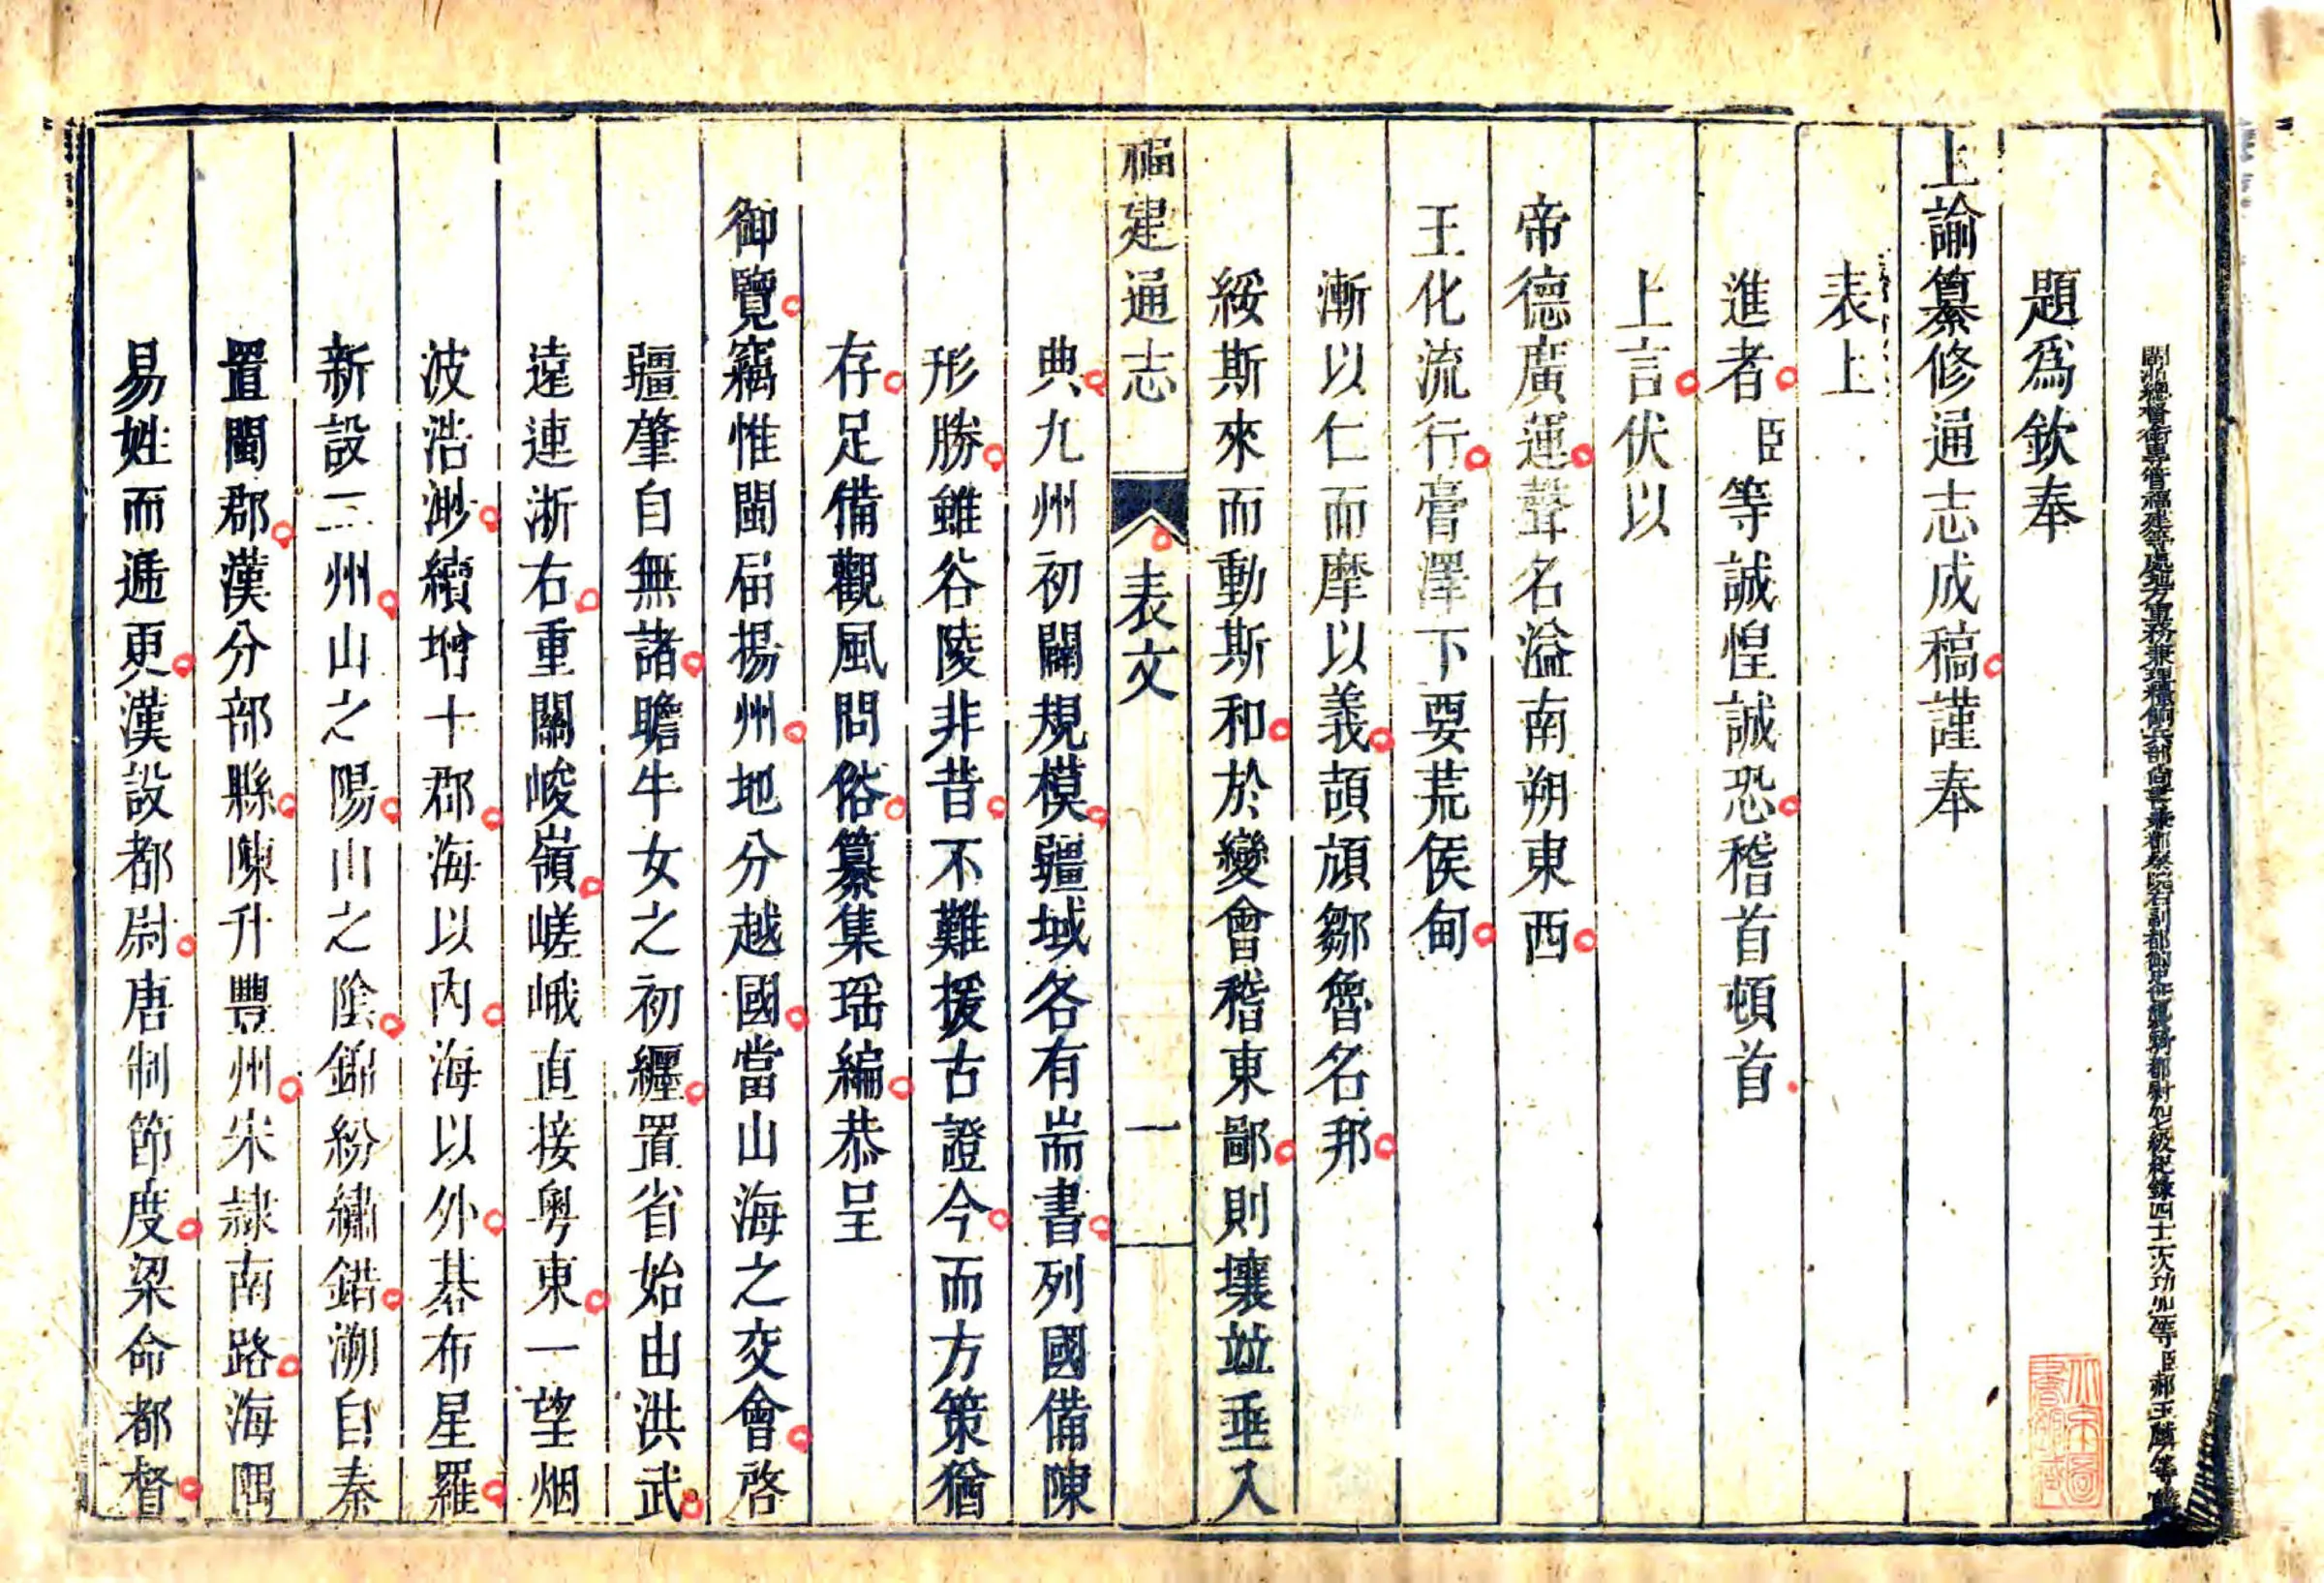 閩浙總督管福建等處地方軍務兼理糧餉兵部尚書兼都察院右副都御史加七級紀錄四十二次功加一等臣郝玉麟等謹
題爲欽奉
上諭纂修通志成稿謹奉
表上
進者臣等誠惶誠恐稽首頓首
上言伏以
帝德廣運聲名溢南朔東西
王化流行膏澤下要荒侯甸
漸以仁而摩以義頡頏鄒魯名邦
綏斯來而動斯和於變會稽東鄙則壤竝垂入
福建通志 表文 一
典九州初闢規模疆域各有耑書列國備陳
形勝雖谷陵非昔不難援古證今而方策猶
存足備觀風問俗纂集瑶編恭呈
御覽竊惟閩屆揚州地分越國當山海之交會啓
疆肇自無諸瞻牛女之初纏置省始由洪武
遠連浙右重關峻嶺嵯峨直接粵東一望烟
波浩渺續增十郡海以內海以外棊布星羅
新設二州山之陽山之陰錦紛繡錯溯自秦
置閩郡漢分部縣陳升豐州宋隷南路海隅
易姓而遞更漢設都尉唐制節度梁命都督